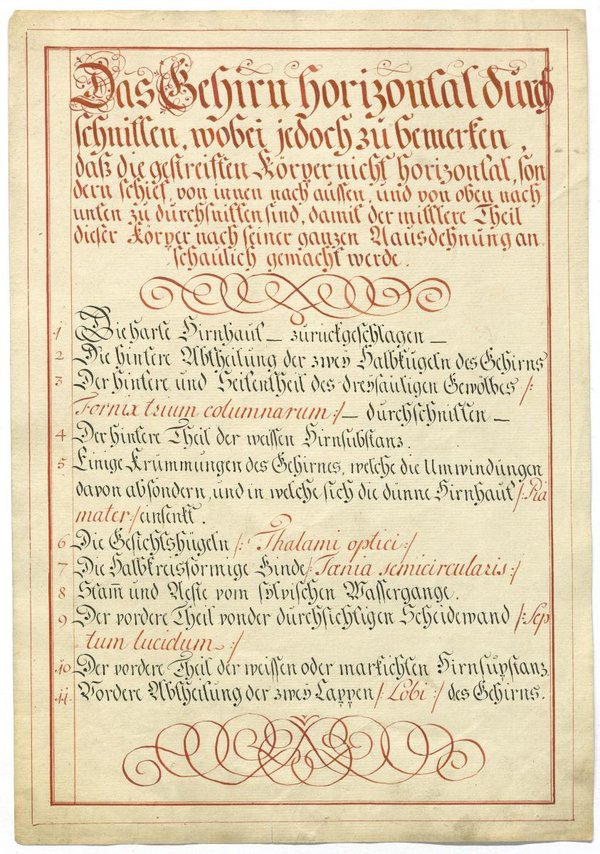 Das Gehirn horizontal durch
schnitten, wobei jedoch zu bemerken,
daß die gestreiften Körper nicht horizontal, son
dern schief, von innen nach aussen, und von oben nach
unten zu durchsnitten sind, damit der mittlere Theil
dieser Körper nach seiner ganzen Aausdehnung an
schaulich gemacht werde.
1 Die harte Hirnhaut — zurückgeschlagen —
2 Die hintere Abtheilung der zwey Halbkugeln des Gehirns
3 Der hintere und Seitentheil des dreysäuligen Gewölbes /:
Fornix trium columnarum :/ — durchschnitten —
4 Der hintere Theil der weissen Hirnsubstanz.
5 Einige Krümmungen des Gehirnes, welche die Umwindungen
davon absondern, und in welche sich die dünne Hirnhaut /: Pia
mater :/ einsenkt.
6 Die Gesichtshügeln /: Thalami optici :/
7 Die Halbkreisförmige Binde /: Tænia semicircularis :/
8 Stamm und Aeste vom sylvischen Wassergange.
9 Der vordere Theil von der durchsichtigen Scheidewand /: Sep
tum lucidum :/
10 Der vordere Theil der weissen oder markichten Hirnsupstanz
11 Vordere Abtheilung der zwey Lappen /: Lobi :/ des Gehirns.